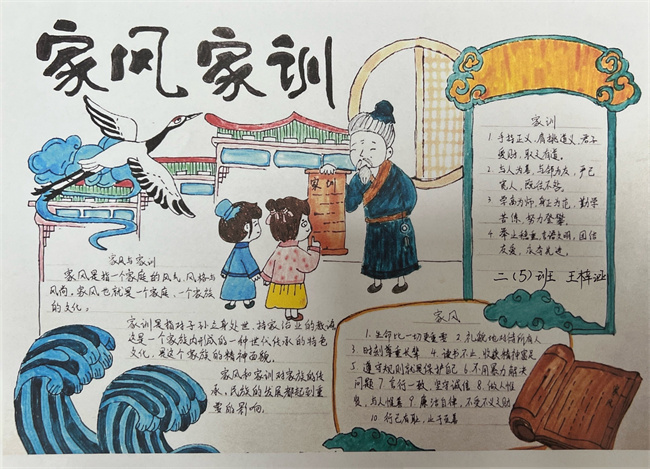 家风家训
家训
家训
1. 手持正义,肩挑道义,君子
爱财,取之有道。
2. 与人为善,与邻为友,严己
宽人,既往不咎。
3. 学高为师,身正为范,勤学
苦练,努力登攀。
4. 举止稳重,言语文明,团结
友爱,庆夺先进。
二(5)班 王梓涵
家风与家训
家风是指一个家庭的风气,风格与
风尚,家风也就是一个家庭、一个家族
的文化。
家训是指对子孙立身处世、持家治业的教诲
这是一个家族内形成的一种世代传承的特色
文化,是这个家族的精神面貌。
家风和家训对家族的传
承,民族的发展都起到重
要的影响。
家风
1. 生命比一切更重要 2. 礼貌地对待所有人
3. 时刻尊重长辈 4. 读书不止,收获精神富足
5. 遵守规则就是保护自己 6. 不用暴力解决
问题 7. 言行一致,坚守诚信 8. 做人性
与人性善 9. 廉洁自律,不受不义之财
10. 行己有耻,止于至善